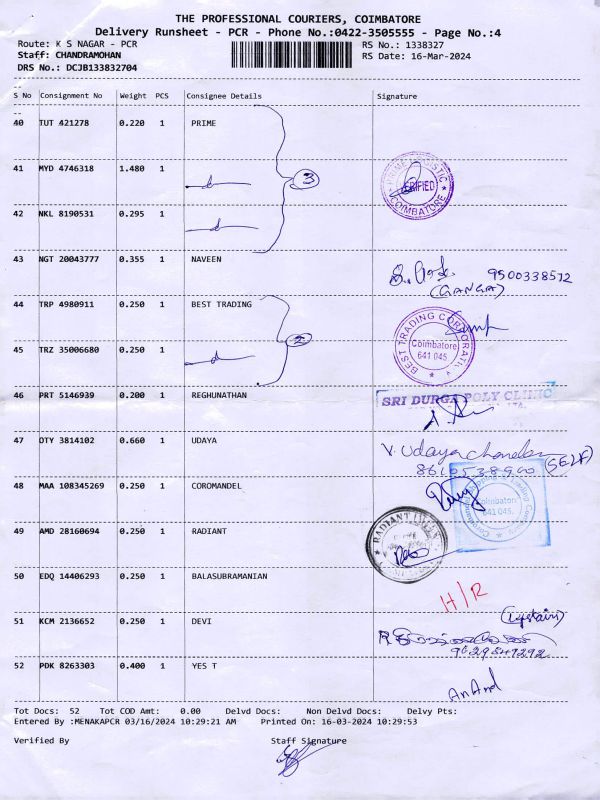 THE PROFESSIONAL COURIERS, COIMBATORE
Delivery Runsheet - PCR - Phone No.:0422-3505555 - Page No.:4
Route: K S NAGAR - PCR RS No.: 1338327
Staff: CHANDRAMOHAN RS Date: 16-Mar-2024
DRS No.: DCJB133832704
S No Consignment No Weight PCS Consignee Details Signature
40 TUT 421278 0.220 1 PRIME
41 MYD 4746318 1.480 1 3 VERIFIED COIMBATORE
42 NKL 8190531 0.295 1
43 NGT 20043777 0.355 1 NAVEEN 9500338572
(GANGA)
44 TRP 4980911 0.250 1 BEST TRADING BEST TRADING CORPORATION
45 TRZ 35006680 0.250 1 2 Coimbatore 641 045.
46 PRT 5146939 0.200 1 REGHUNATHAN SRI DURGA POLY CLINIC
47 DTY 3814102 0.660 1 UDAYA V. Udaya Chandan
(SELF)
48 MAA 108345269 0.250 1 COROMANDEL Coimbatore 641 045.
49 AMD 28160694 0.250 1 RADIANT RADIANT
50 EDQ 14406293 0.250 1 BALASUBRAMANIAN H/R
51 KCM 2136652 0.250 1 DEVI (Upstair)
9629547292
52 PDK 8263303 0.400 1 YES T Anand
Tot Docs: 52 Tot COD Amt: 0.00 Delvd Docs: Non Delvd Docs: Delvy Pts:
Entered By :MENAKAPCR 03/16/2024 10:29:21 AM Printed On: 16-03-2024 10:29:53
Verified By Staff Signature